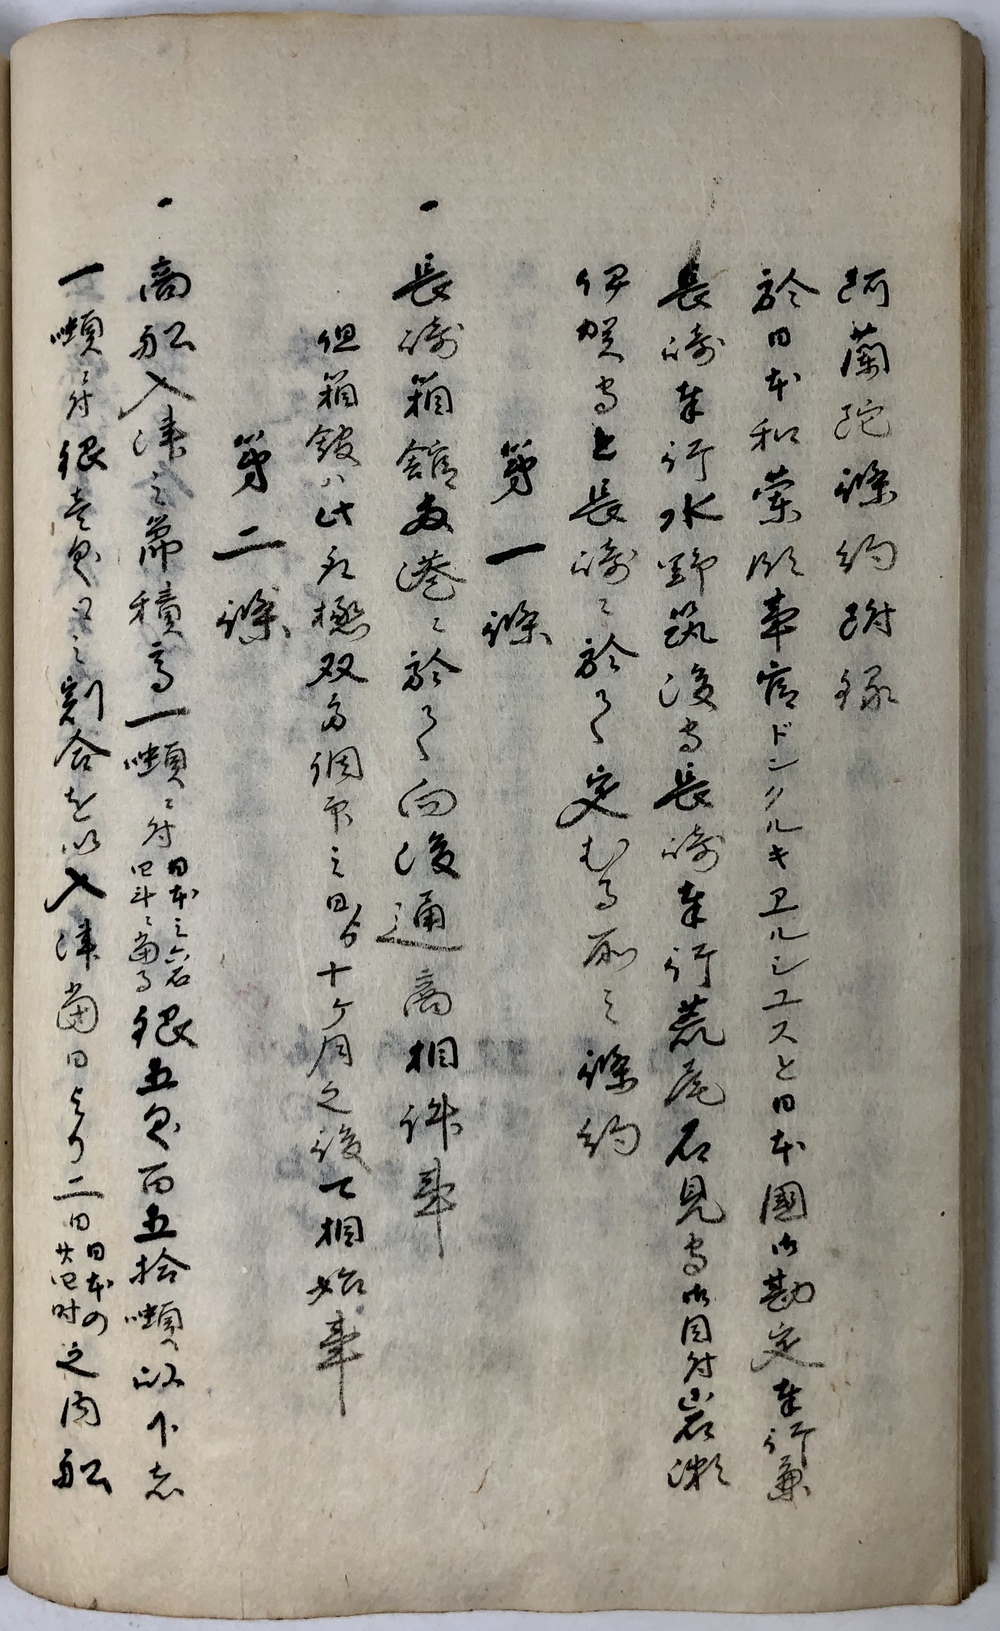 阿蘭陀條約附録
於日本和蘭領事官ドンクルキユルシユスと日本國御勘定奉行兼
長崎奉行水野筑後守長崎奉行荒尾石見守御目附岩瀬
伊賀守と長崎ニ於て定むる所之條約
第一條
一長崎箱館両港ニ於て向後通商相許事
但箱館ハ此取極双方調印之日ゟ十ヶ月之後可相始事
第二條
一商船入津之節積高一噸ニ付日本之六石四斗ニ當る銀五匁百五拾噸以下者
一噸ニ付銀壱匁之割合を以入津當日より二日日本の廿四時之内船